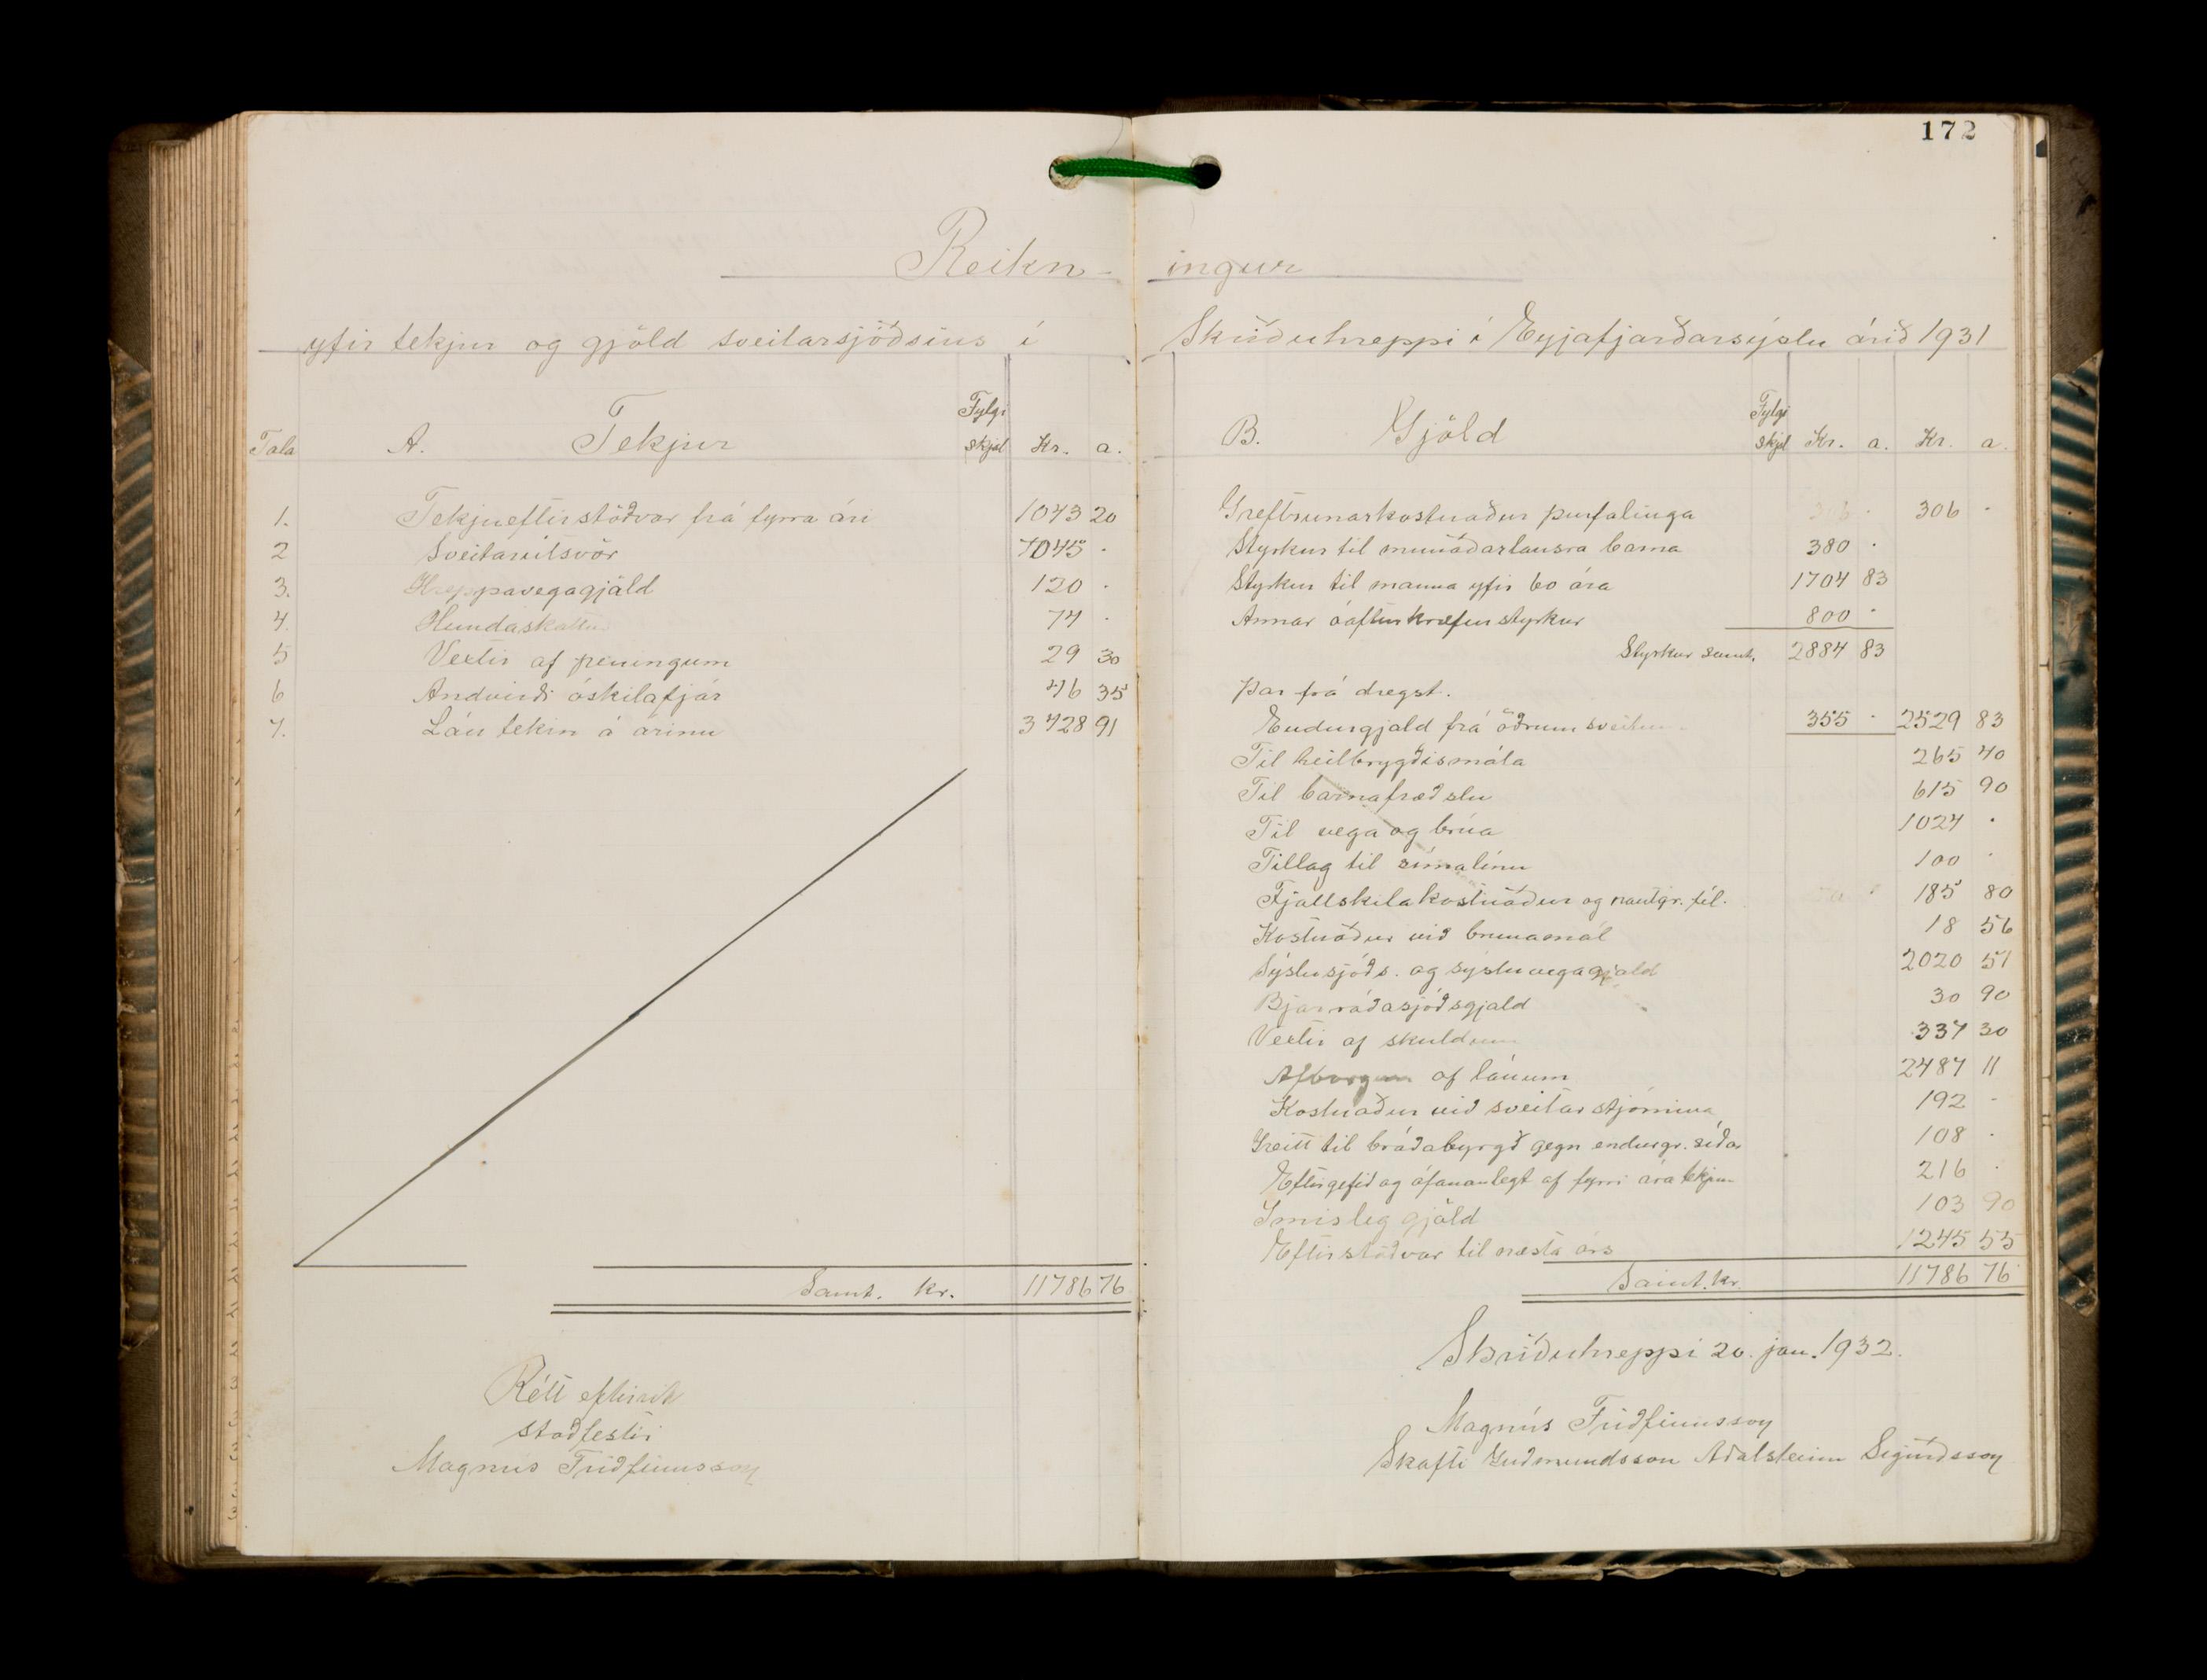 172
Reikn- ingur
yfir tekjur og gjöld sveitarsjóðsins í Skriðuhreppi í Eyjafjarðarsýslu árið 1931
Tala A. Tekjur Fylgi skjal Kr. a.
1. Tekjueftirstöðvar frá fyrra ári 1043 20
2 Sveitarútsvör 7045 .
3. Hreppavegagjald 120 .
4. Hundaskattur 74 .
5 Vextir af peningum 29 30
6 Andvirði óskilafjár 46 35
7. Lán tekin á árinu 3428 91
Samt. kr. 11786 76
Rétt eftirrit
staðfestir
Magnús Friðfinnsson
B. Gjöld Fylgi skjal Kr. a. Kr. a.
Greftrunarkostnaður þurfalinga 306 . 306 .
Styrkur til munaðarlausra barna 380 .
Styrkur til manna yfir 60 ára 1704 83
Annar óafturkræfur styrkur 800 .
Styrkur samt. 2884 83
Þar frá dregst.
Endurgjald frá öðrum sveitum 355 . 2529 83
Til heilbrygðismála 265 40
Til barnafræðslu 615 90
Til vega og brúa 1024 .
Tillag til símalínu 100 .
Fjallskilakostnaður og nautgr. fél. 185 80
Kostnaður við brunamál 18 56
Sýslusjóðs. og sýsluvegagjald 2020 51
Bjarráðasjóðsgjald 30 90
Vextir af skuldum 337 30
Afborgun af lánum 2487 11
Kostnaður við sveitarstjórnina 192 -
Greitt til bráðabyrgð gegn endurgr. síðar 108 .
Eftirgefið og ófáanlegt af fyrri ára tekjum 216 .
Ímisleg gjöld 103 90
Eftirstöðvar til næsta árs 1245 55
Samt. kr. 11786 76
Skriðuhreppi 20. jan. 1932.
Magnús Friðfinnsson
Skafti Guðmundsson Aðalsteinn Sigurðsson